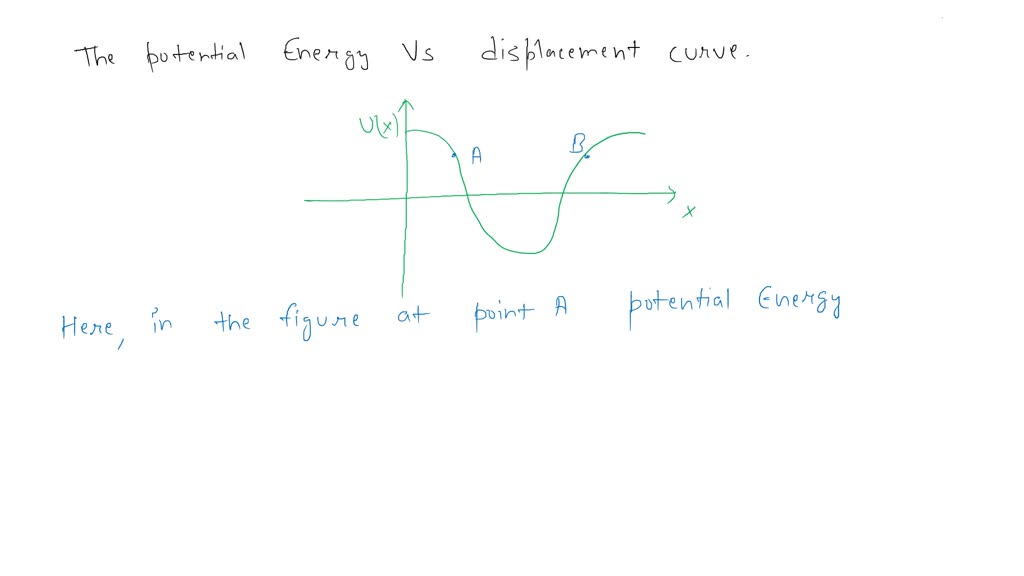 The potential Energy Vs displacement curve.
U(x)
A
B
x
Here, in the figure at point A potential Energy